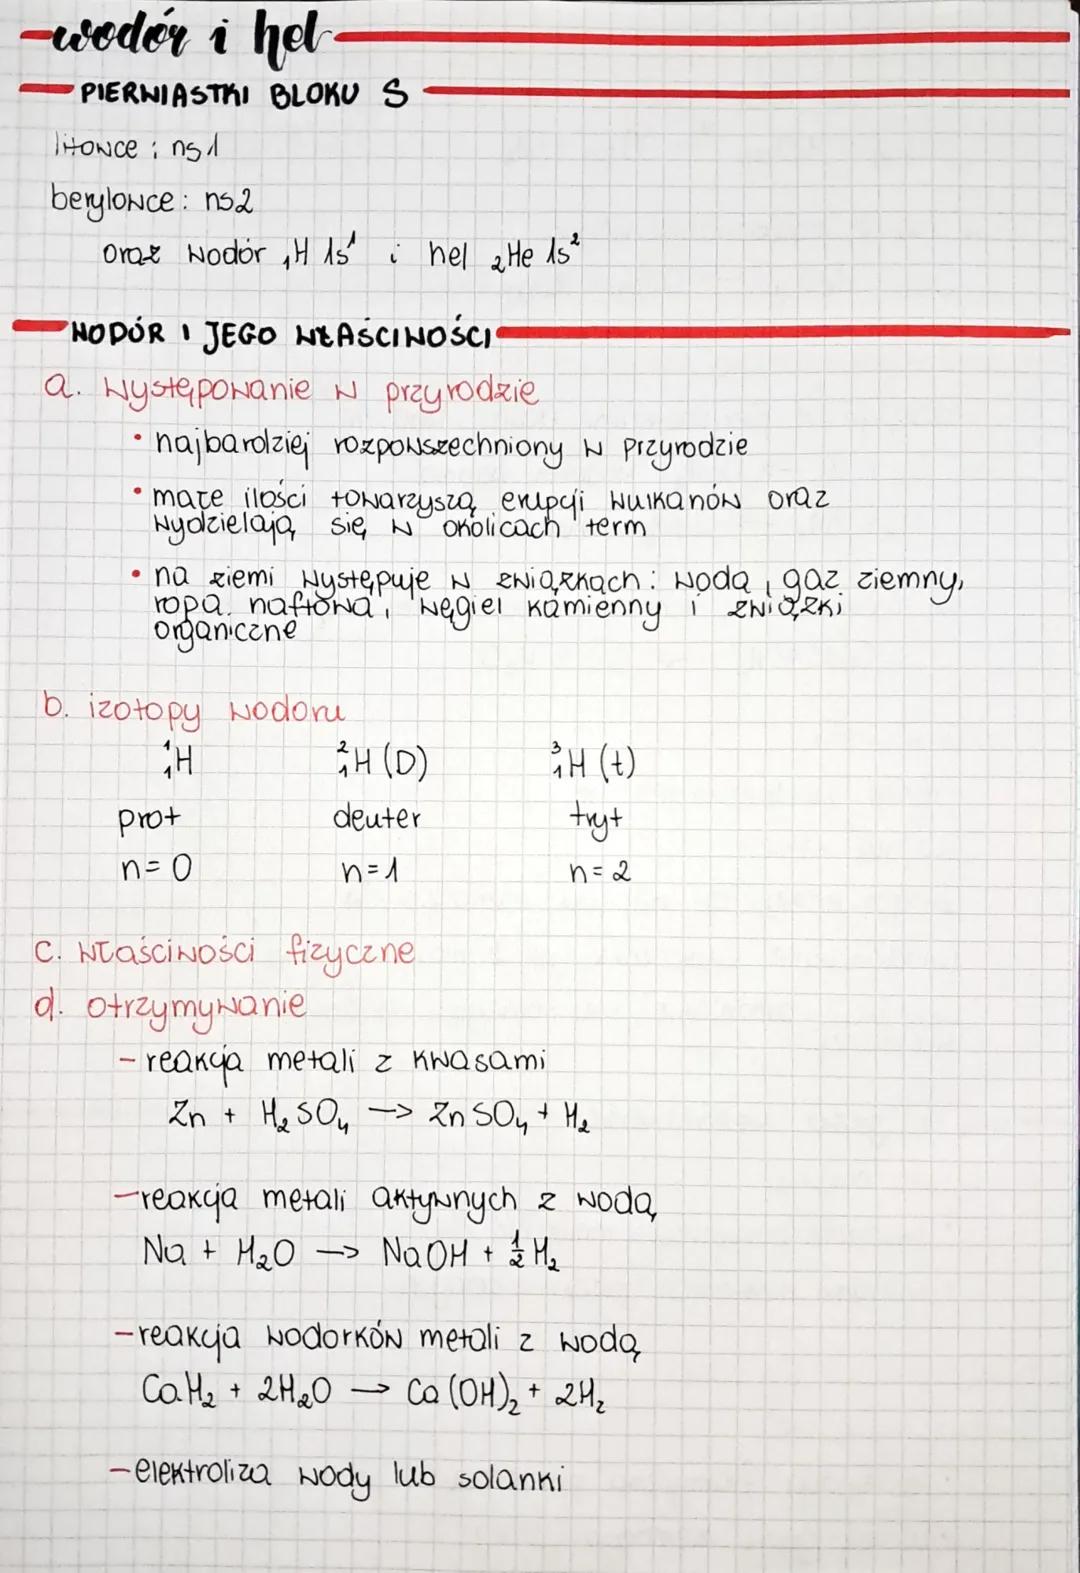 wodór i hel
PIERWIASTKI BLOKU S
litowce : ns1
berylowce : ns2
oraz wodór ₁H 1s¹ i hel ₂He 1s²
WODÓR I JEGO WŁAŚCIWOŚCI
a. występowanie w przyrodzie
• najbardziej rozpowszechniony w przyrodzie
• małe ilości towarzyszą erupcji wulkanów oraz
wydzielają się w okolicach term
• na ziemi występuje w związkach : woda, gaz ziemny,
ropa naftowa, węgiel kamienny i związki
organiczne
b. izotopy wodoru
¹₁H ²₁H (D) ³₁H (t)
prot deuter tryt
n = 0 n = 1 n = 2
c. właściwości fizyczne
d. otrzymywanie
- reakcja metali z kwasami
Zn + H₂SO₄ -> ZnSO₄ + H₂
- reakcja metali aktywnych z wodą
Na + H₂O -> NaOH + ½ H₂
- reakcja wodorków metali z wodą
CaH₂ + 2H₂O -> Ca(OH)₂ + 2H₂
- elektroliza wody lub solanki